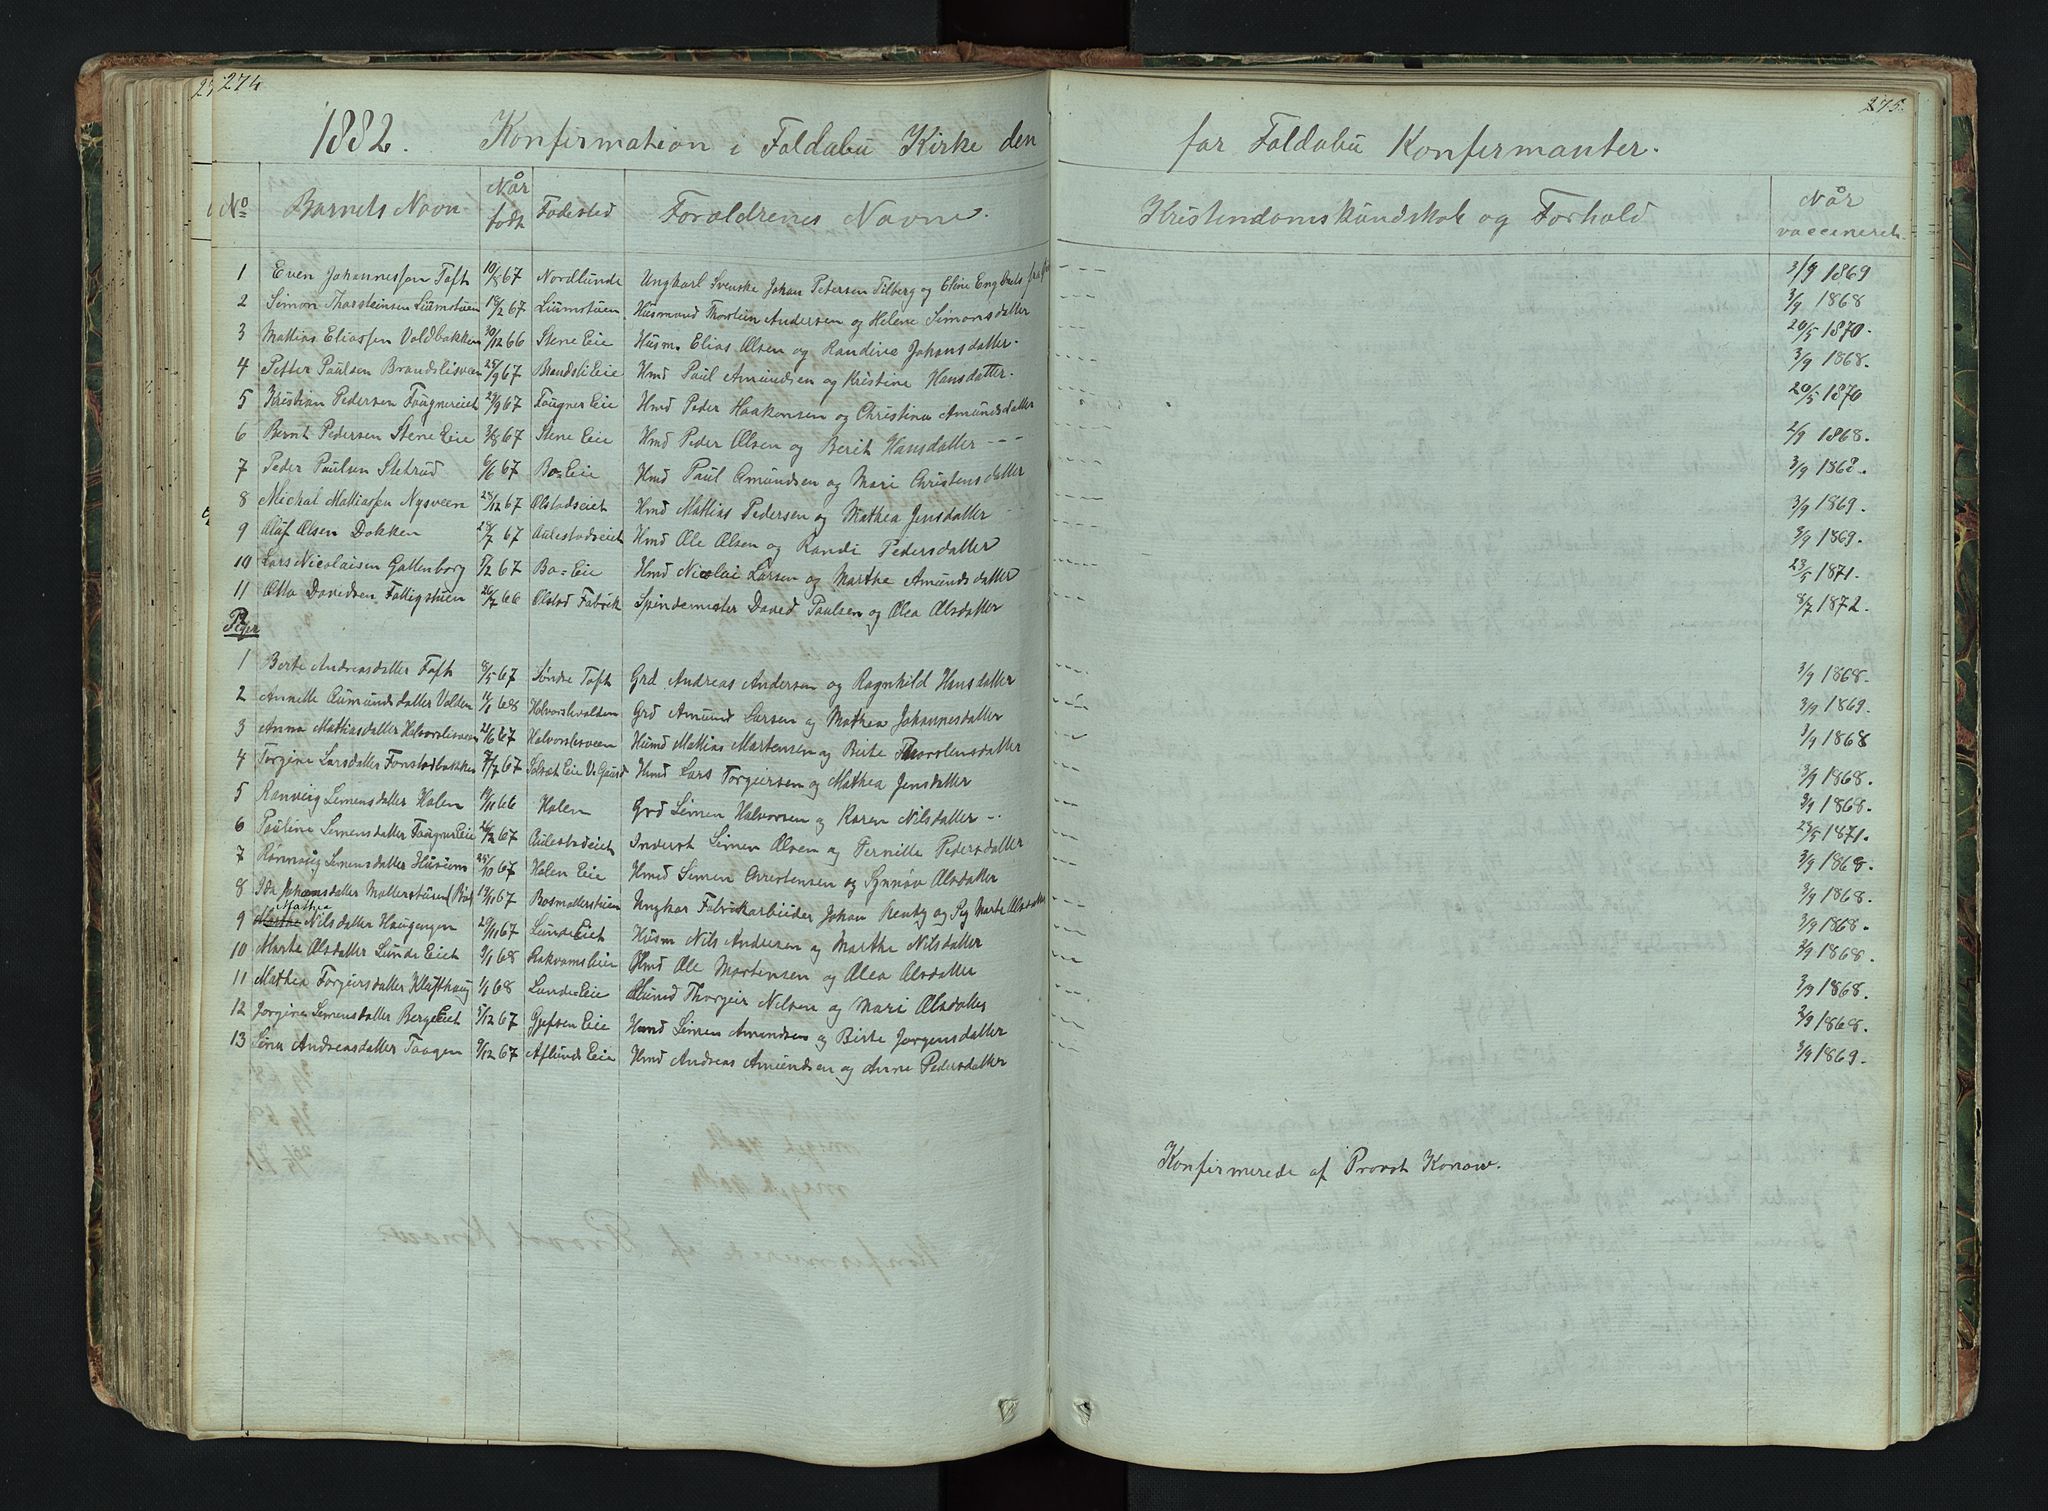 274
275.
1882. Konfirmation i Foldabu Kirke den for Foldabu Konfirmanter.
No Barnets Navn Når født Fødested Forældrenes Navne. Kristendomskundskab og Forhold Når vaccineret
1 Even Johannessen Toft 10/8 67 Nordlunde Ungkarl Svenske Johan Petersen Tilberg og Eline Engbrets --- 3/9 1869
2 Simon Thorsteinsen Liumstuen 18/2 67 Liumstuen Husmand Thorstein Andersen og Helene Simonsdatter --- 3/9 1868
3 Mathias Eliassen Voldbakken 30/12 66 Stene Eie Husm. Elias Olsen og Randine Johansdatter. 20/5 1870.
4 Petter Paulsen Brandslisveen 25/9 67 Brandsli Eie Hmd Paul Amundsen og Kristine Hansdatter. 3/9 1868.
5 Kristian Pedersen Faugnereiet 27/9 67 Faugner Eie Hmd Peder Haakensen og Christine Amundsdatter 20/5 1870
6 Bernt Pedersen Stene Eie 3/8 67 Stene Eie Hmd Peder Olsen og Berit Hansdatter --- 2/9 1868.
7 Peder Paulsen Sletrud 6/6 67 Bø=Eie Hmd Paul Amundsen og Mari Christensdatter --- 3/9 1868.
8 Michal Mathiassen Nysveen 25/12 67 Olstadseiet Hmd Mathias Pedersen og Mathea Jensdatter --- 3/9 1869.
9 Oluf Olsen Dokken 28/7 67 Aulestadseiet Hmd Ole Olsen og Randi Pedersdatter --- 3/9 1869.
10 Lars Nicolaisen Gattenborg 5/2 67 Bø=Eie Hmd Nicolai Larsen og Marthe Amundsdatter --- 23/5 1871.
11 Otto Davidsen Fattigstuen 26/7 66 Olstad Fabrik Spindemester David Paulsen og Olea Olsdatter --- 8/7 1872.
Piger
1 Berte Andreasdatter Toft 8/5 67 Søndre Toft Grd Andreas Andersen og Ragnhild Hansdatter --- 3/9 1868.
2 Annette Aumundsdatter Volden 11/1 68 Halvorslivolden Grd Amund Larsen og Mathea Johannesdatter --- 3/9 1869.
3 Anna Mathiasdatter Halvorslisveen 21/6 67 Halvorslisveen Husmd Mathias Martensen og Birte Thorstensdatter 3/9 1868
4 Torgine Larsdatter Fonstadbakken 7/7 67 Solvet Eie V. Gausd Hmd Lars Torgeirsen og Mathea Jensdatter 3/9 1868.
5 Ranveig Simensdatter Holen 19/11 66 Holen Grd Simen Halvorsen og Karen Nilsdatter --- 3/9 1868.
6 Pauline Simensdatter Faugner Eie 26/2 67 Aulestadeiet Inderst Simen Olsen og Pernille Pedersdatter --- 23/5 1871.
7 Rønnaug Simensdatter Husum 25/10 67 Holen Eie Hmd Simen Christensen og Synnøv Olsdatter --- 3/9 1868.
8 Ida Johansdatter Møllerstuen (Bø) 19/10 67 Bøsmøllerstuen Ungkar Fabrikarbeider Johan Renty og Pig Marte Olsdatter --- 3/9 1868.
Mathea
9 Marthe Nilsdatter Haugengen 29/11 67 Lunde Eiet Husm Nils Andersen og Marthe Nilsdatter --- 3/9 1868.
10 Marte Olsdatter Lunde Eiet 3/1 68 Rakvams Eie Hmd Ole Martensen og Olea Olsdatter --- 3/9 1868.
11 Mathea Torgeirsdatter Klufthaug 1/1 68 Lunde Eie Husmd Thorgeir Nilsen og Mari Olsdatter --- 3/9 1868.
12 Jørgine Simensdatter Berge Eiet 5/12 67 Gjefsen Eie Hmd Simen Amundsen og Birte Jørgensdatter --- 2/9 1868.
13 Sina Andreasdatter Taagen 9/12 67 Aflunds Eie Hmd Andreas Amundsen og Anne Pedersdatter --- 3/9 1869.
Konfirmerede af Provst Konow.